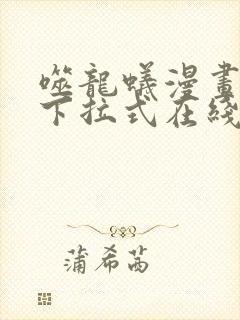 噬龍蟻漫畫
下拉式在綫
蒲希茜